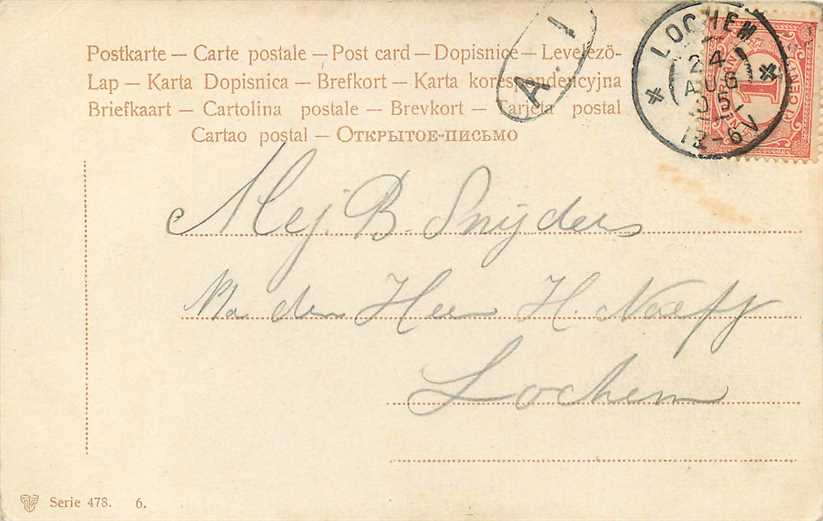 Postkarte — Carte postale — Post card — Dopisnice — Levelező-
Lap — Karta Dopisnica — Brefkort — Karta korespondencyjna
Briefkaart — Cartolina postale — Brevkort — Tarjeta postal
Cartao postal — Открытое-письмо
A.1
LOCHEM
24
AUG
05
12-6V
1
Mej. B. Snijders
den Heer H. Naeff
Lochem
Serie 478. 6.